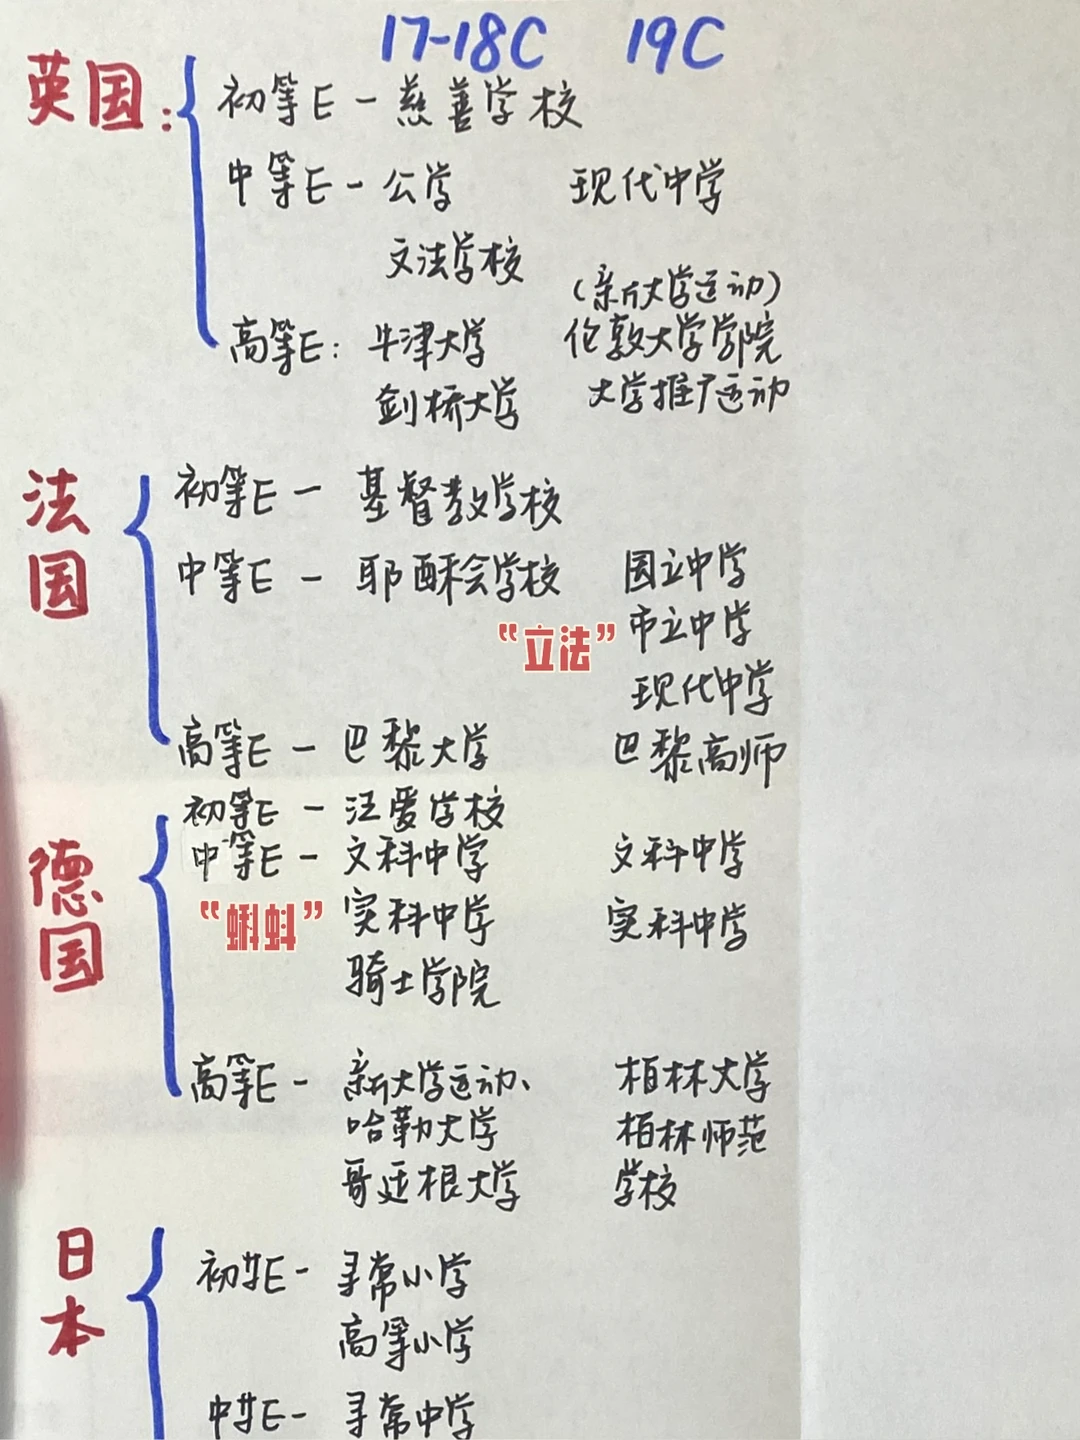 17-18C 19C
英国：
初等E - 慈善学校
中等E - 公学 现代中学
文法学校
(新大学运动)
高等E： 牛津大学 伦敦大学学院
剑桥大学 大学推广运动
法国
初等E - 基督教学校
中等E - 耶酥会学校 国立中学
“立法” 市立中学
现代中学
高等E - 巴黎大学 巴黎高师
德国
初等E - 泛爱学校
中等E - 文科中学 文科中学
“蝌蚪” 实科中学 实科中学
骑士学院
高等E - 新大学运动、 柏林大学
哈勒大学 柏林师范
哥廷根大学 学校
日本
初等E - 寻常小学
高等小学
中等E - 寻常中学